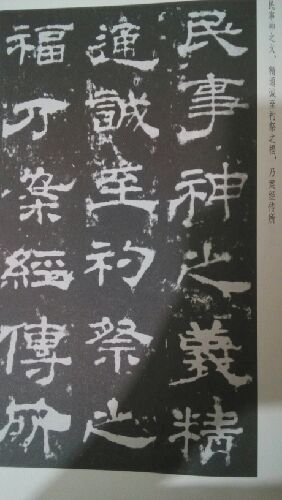 民事神之義精
通誠至礿祭之
福乃案經傳所
民事神之义，精通诚至礿祭之福。乃案经传所